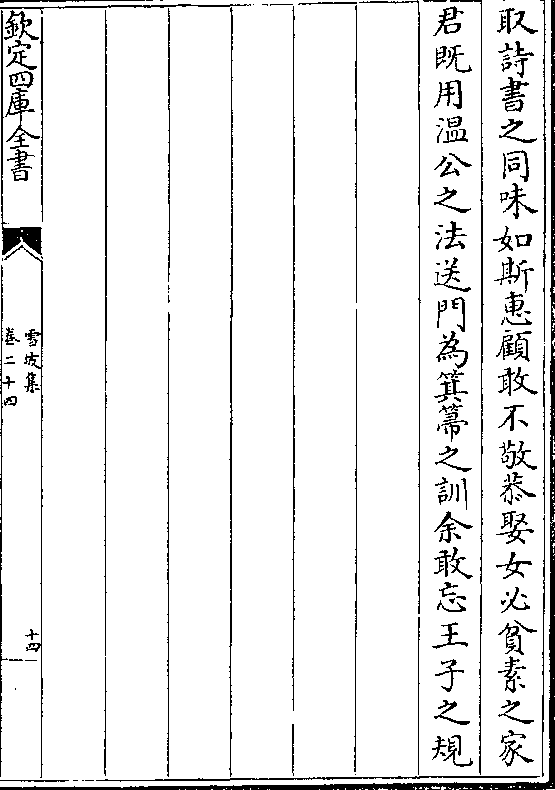 取詩書之同味如斯惠顧敢不敬恭娶女必貧素之家
君既用温公之法送門為箕箒之訓余敢忘王子之規
欽定四庫全書
雪坡集
卷二十四
十四